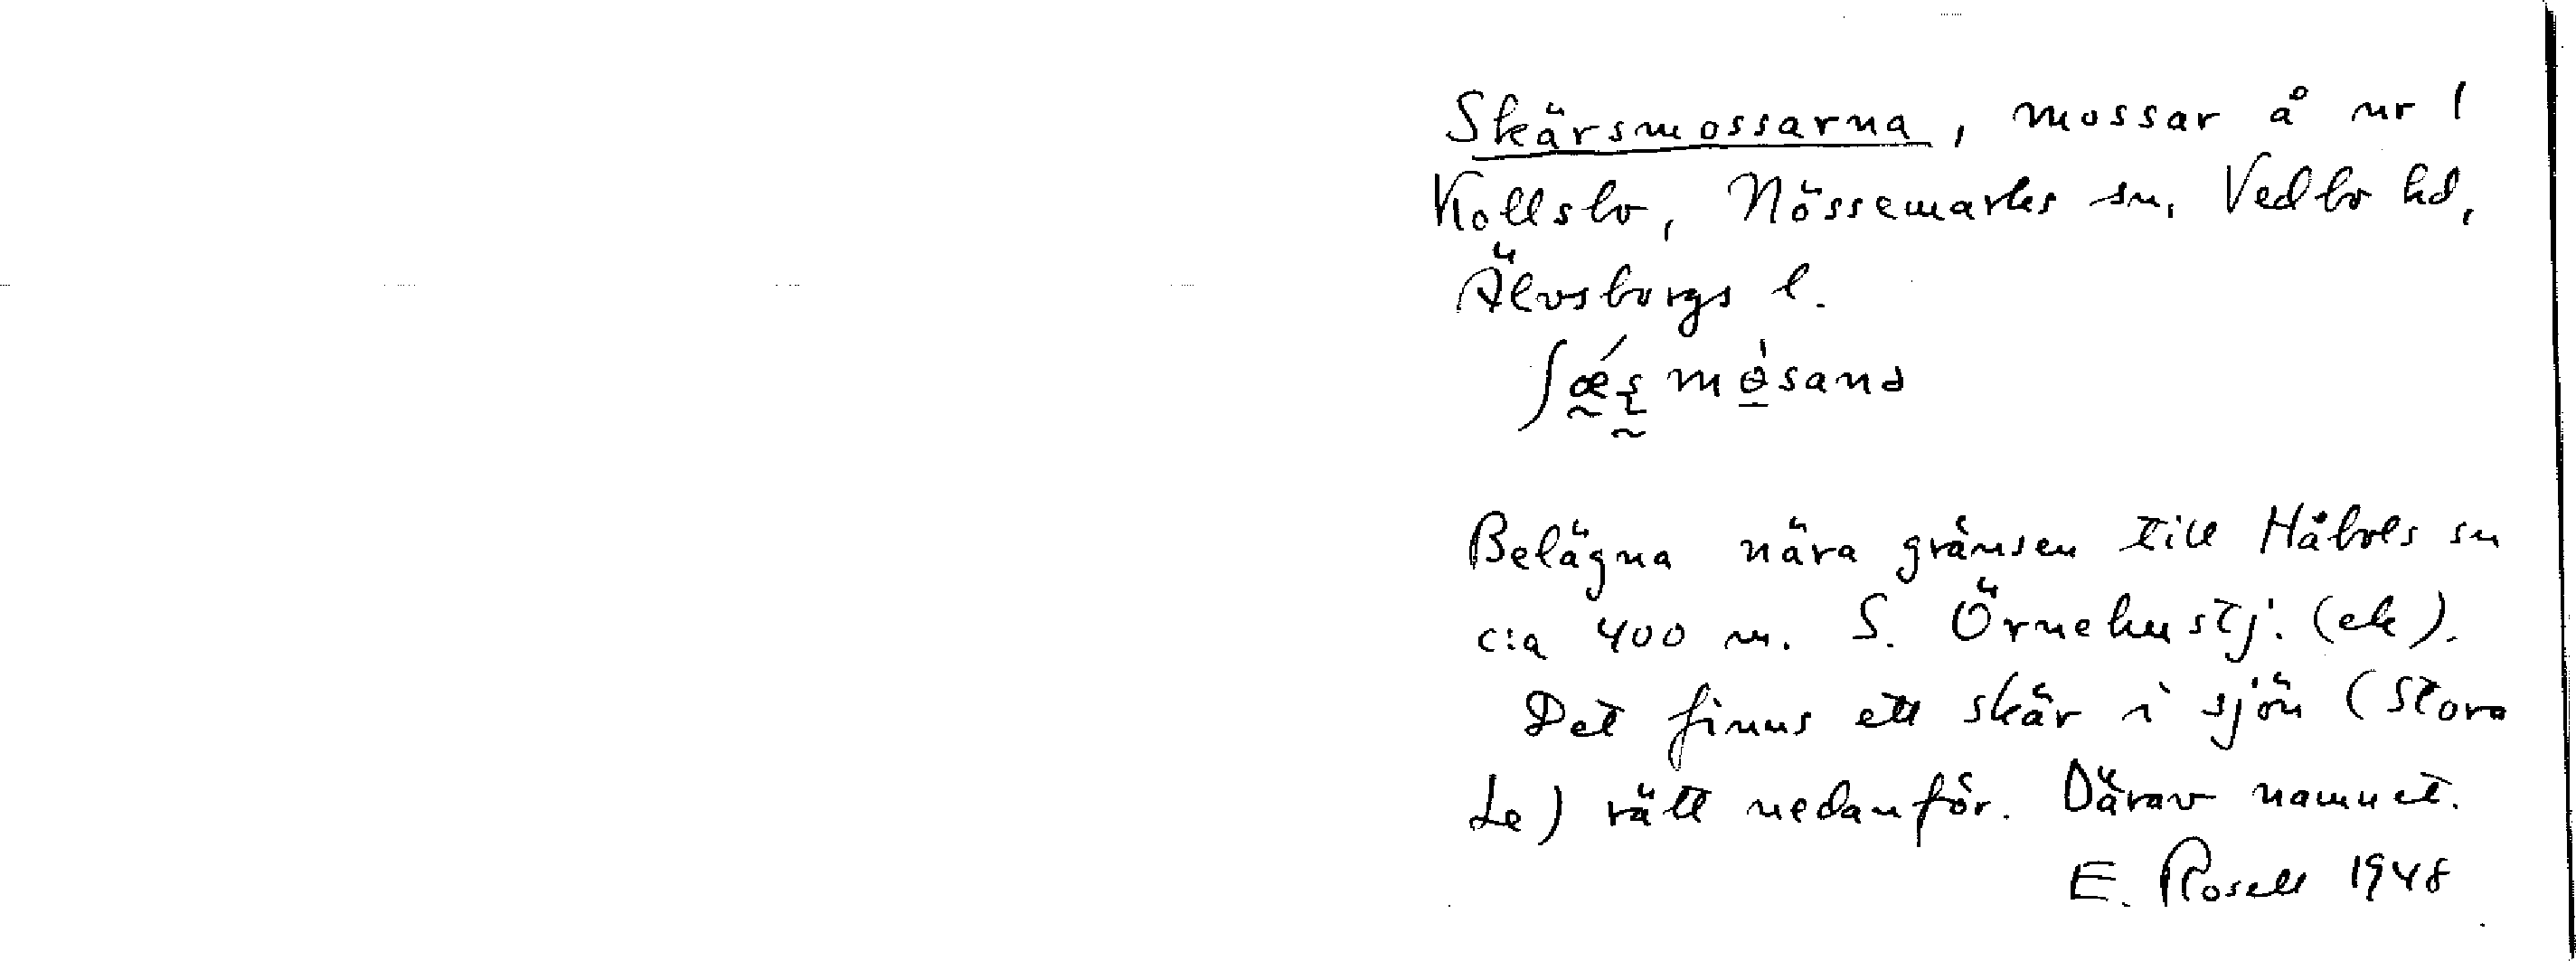 Skärsmossarna, mossar å nr 1
Kollsbo, Nössemarks sn, Vedbo hd,
Älvsborgs l.
Belägna nära gränsen till Håbols sn
c:a 400 m. S. Örnehustj. (ek).
Det finns ett skär i sjön (Stora
Le) rätt nedanför. Därav namnet.
E. Rosell 1948